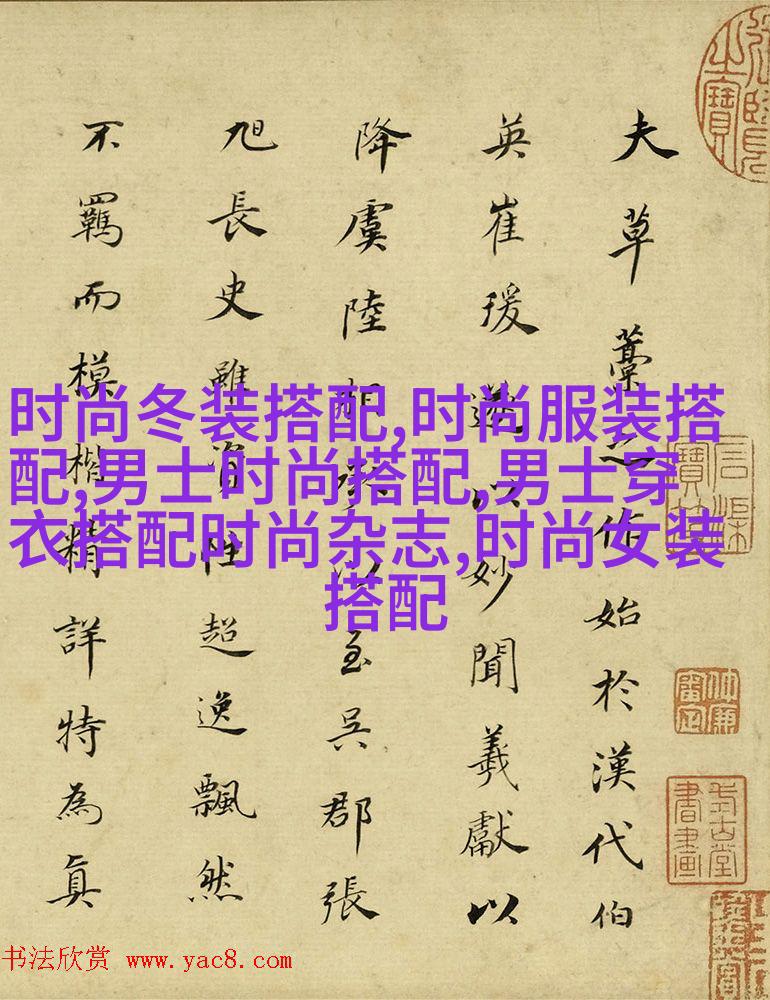 夫草藁之作始於漢代伯
英崔瑗遂以妙聞羲獻以
降虞陸相承以至吳郡張
旭長史雖資性超逸飄然
不羈而模楷精詳特為真
时尚冬装搭配,时尚服装搭
配,男士时尚搭配,男士穿
衣搭配时尚杂志,时尚女装
搭配
书法欣赏 www.yac8.com